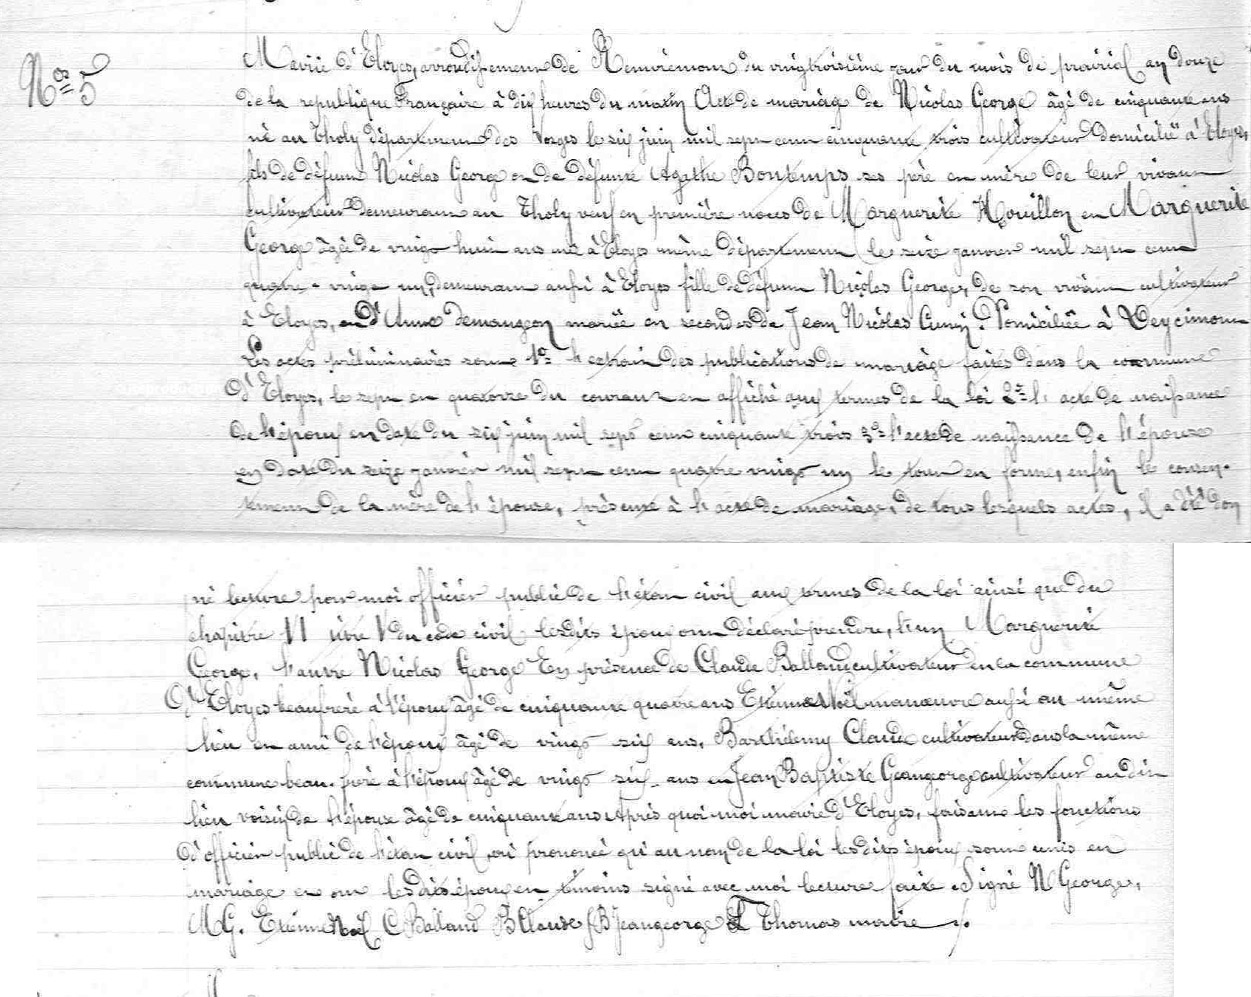 Nos 5
Mairie d'Eloyes, arrondissement de Remiremont du vingt troisième jour du mois de prairial an douze
de la republique Française à dix heures du matin Acte de mariage de Nicolas George âgé de cinquante ans
né au Tholy département des Vosges le six juin mil sept cent cinquante trois cultivateur domicilié à Eloyes,
fils de défunt Nicolas George et de défunte Agathe Bontemps ses père et mère de leur vivant
cultivateur demeurant au Tholy veuf en première noces de Marguerite Houillon et Marguerite
George âgé de vingt huit ans né à Eloyes même département le seize janvier mil sept cent
quatre-vingt un, demeurant aussi à Eloyes fille de défunt Nicolas George, de son vivant cultivateur
à Eloyes, et d'Anne Demangeon mariée en secondes de Jean Nicolas Cunin. Domiciliée à Deycimont
Les actes préliminaires sont 1o l'extrait des publications de mariage faites dans la commune
d'Eloyes, le sept et quatorze du courant et affiché aux termes de la loi 2o l'acte de naissance
de l'époux en date du six juin mil sept cent cinquante trois 3o l'acte de naissance de l'épouse
en date du seize janvier mil sept cent quatre vingt un le tout en forme, enfin le consen-
tement de la mère de l'épouse, présente à l'acte de mariage, de tous lesquels actes, il a été don
né lecture par moi officier public de l'état civil aux termes de la loi ainsi que du
chapitre VI titre V du code civil lesdits époux ont déclaré prendre, l'un Marguerite
George, l'autre Nicolas George En présence de Claude Balland cultivateur en la commune
d'Eloyes beaufrere à l'époux âgé de cinquante quatre ans Etienne Noël manœuvre aussi au même
lieu et ami de l'époux âgé de vingt six ans, Barthelemy Claude cultivateur dans la même
commune beau-frère à l'époux âgé de vingt six ans et Jean Baptiste Geangeorge cultivateur audit
lieu voisin de l'épouse âgé de cinquante ans Après quoi moi maire d'Eloyes, faisant les fonctions
d'officier public de l'état civil, ai prononcé qu'au nom de la loi lesdits époux sont unis en
mariage et ont lesdits époux et témoins signé avec moi lecture faite. Signé N George,
M G. Etienne Noel C Balland B Claude J B Jeangeorge Thomas maire